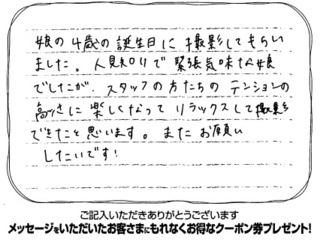 娘の4歳の誕生日に撮影してもらい
ました。人見知りで緊張気味な娘
でしたが、スタッフの方たちのテンションの
高さに楽しくなってリラックスして撮影
できたと思います。またお願い
したいです!
ご記入いただきありがとうございます
メッセージをいただいたお客さまにもれなくお得なクーポン券プレゼント!